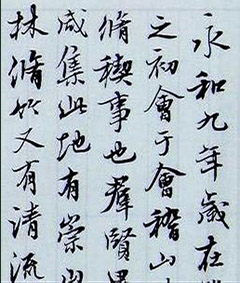 永和九年歲在
之初會于會稽山
脩稧事也羣賢畢
咸集此地有崇山
林脩竹又有清流